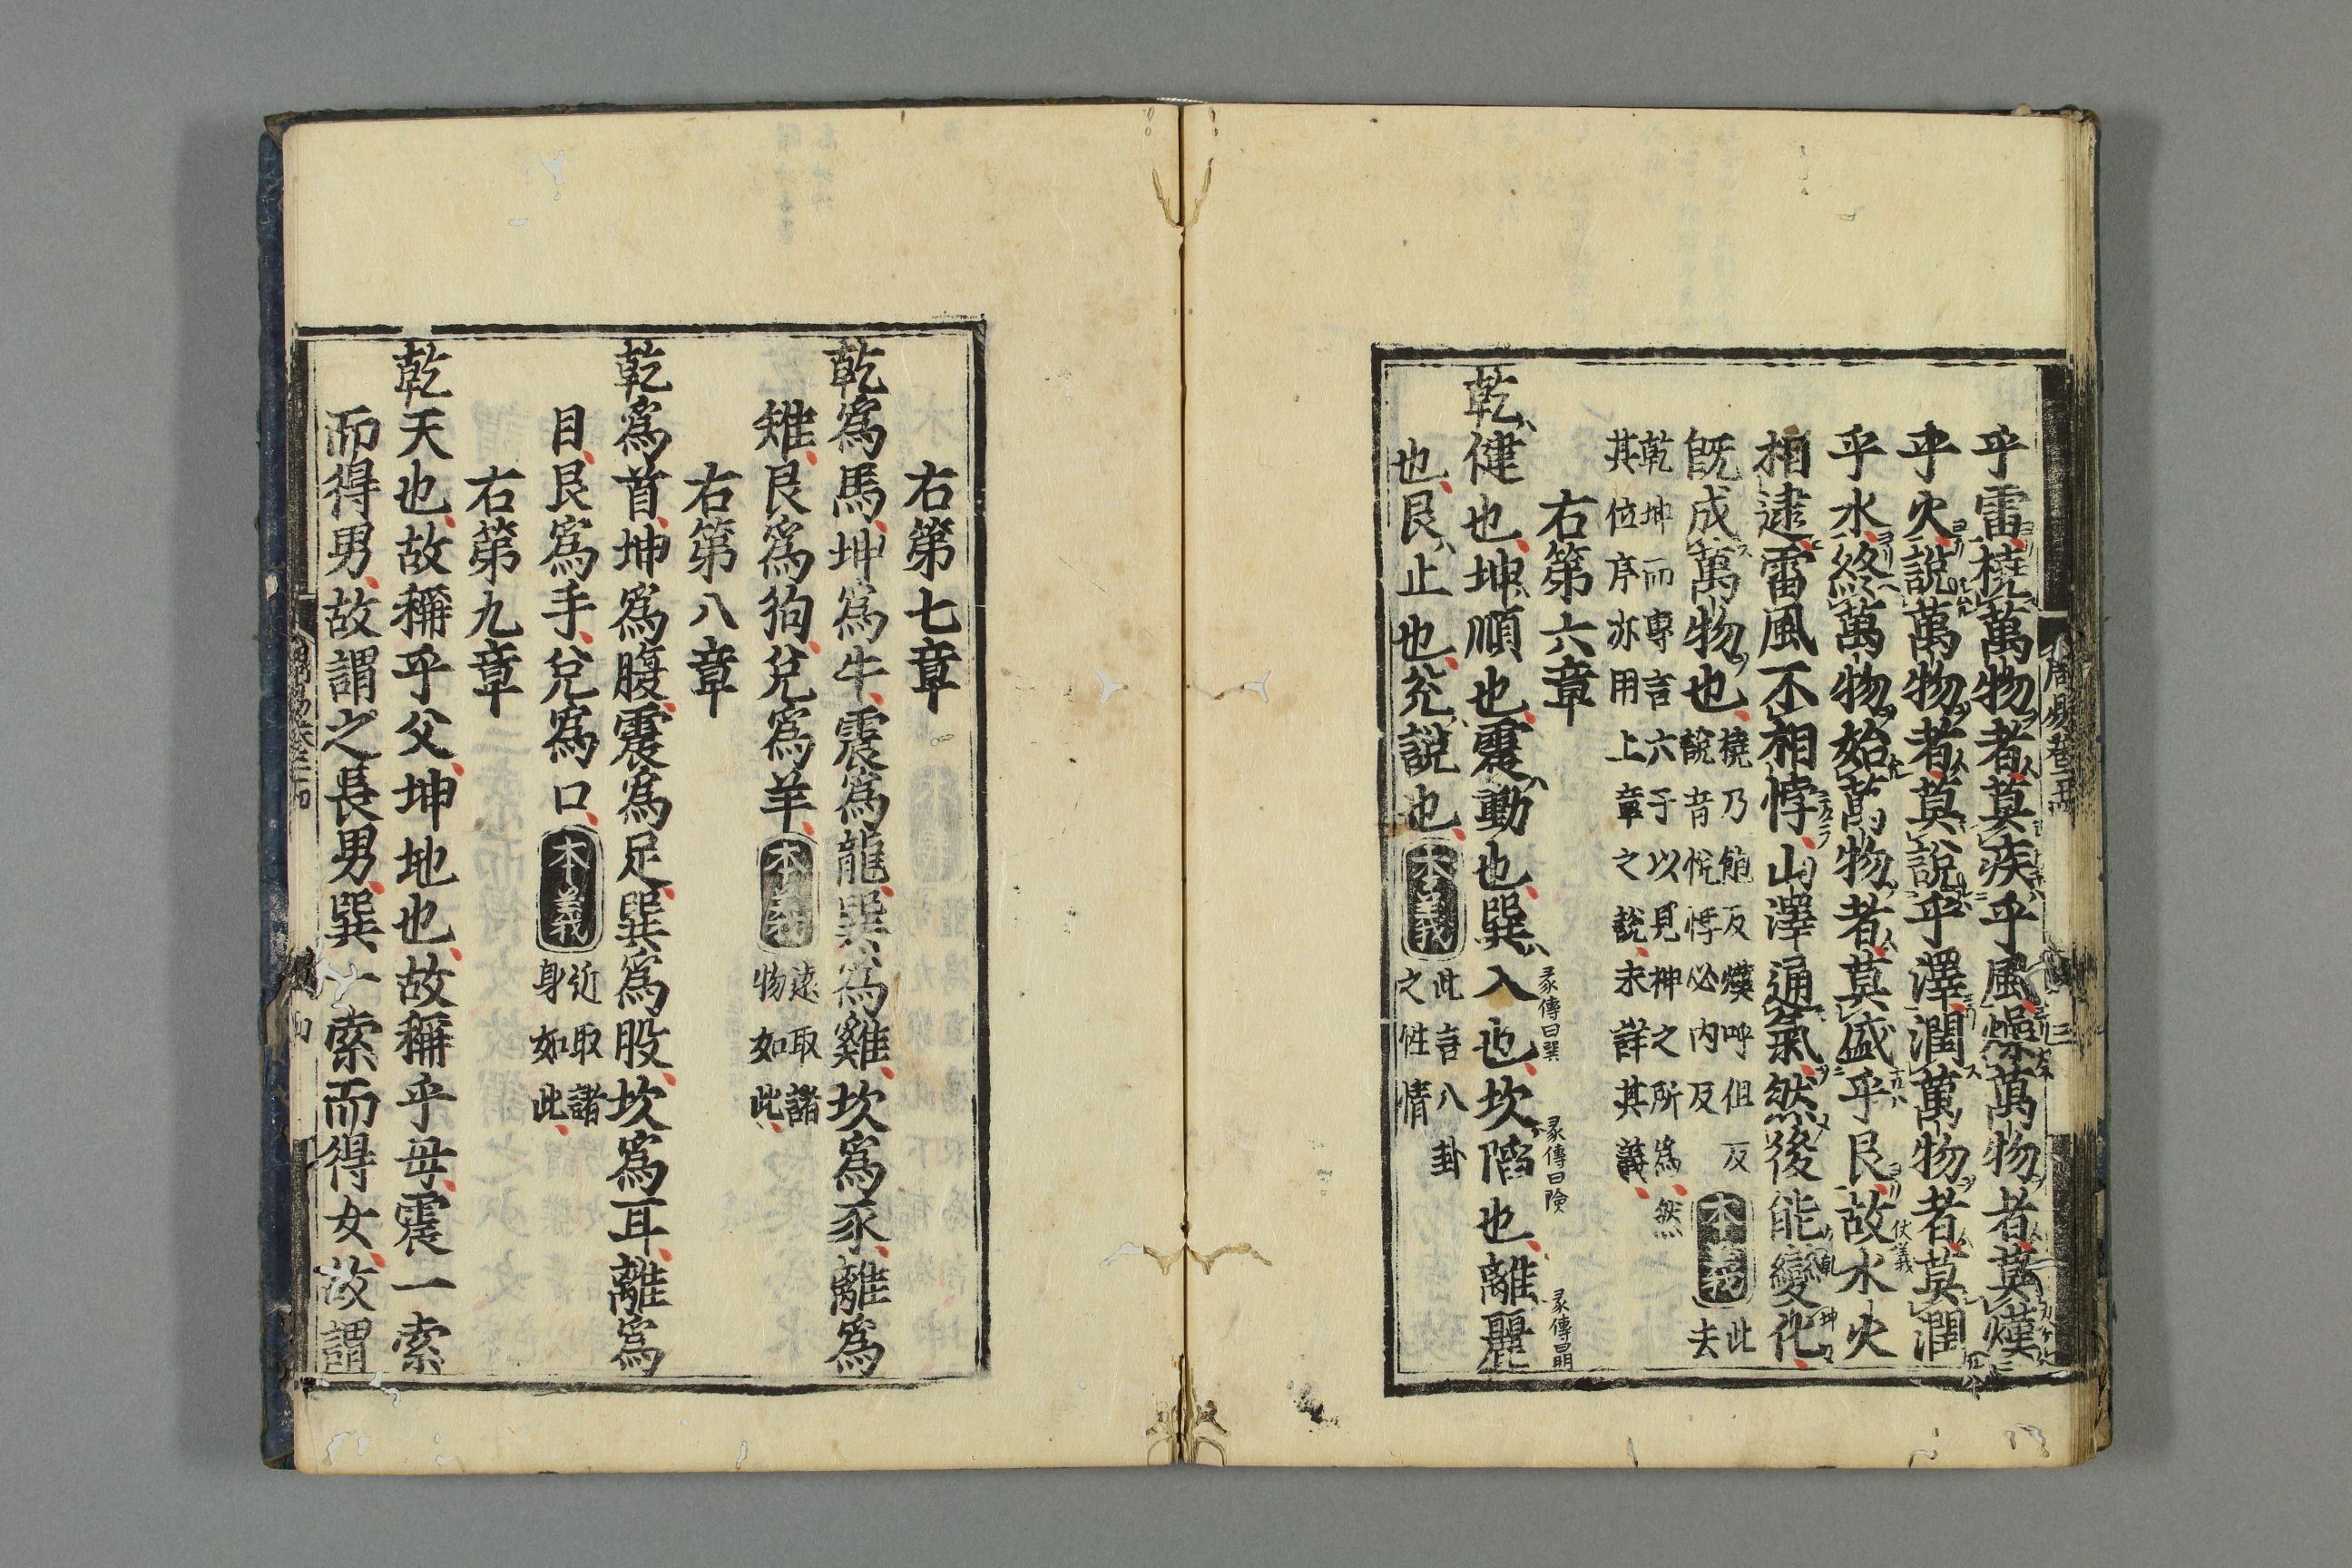 乎雷橈萬物者莫疾乎風燥萬物者莫熯
乎火說萬物者莫說乎澤潤萬物者莫潤
乎水終萬物始萬物者莫盛乎艮故水火
相逮雷風不相悖山澤通氣然後能變化
既成萬物也橈乃飽反熯呼但反
說音悅悖必內反本義此
去
乾坤而專言六子以見神之所爲然
其位序亦用上章之說未詳其義
右第六章
乾健也坤順也震動也巽入也坎陷也離麗
彖傳曰巽
彖傳曰險
也艮止也兌說也本義此言八卦
之性情
右第七章
乾爲馬坤爲牛震爲龍巽爲雞坎爲豕離爲
雉艮爲狗兌爲羊本義遠取諸
物如此
右第八章
乾爲首坤爲腹震爲足巽爲股坎爲耳離爲
目艮爲手兌爲口本義近取諸
身如此
右第九章
乾天也故稱乎父坤地也故稱乎母震一索
而得男故謂之長男巽一索而得女故謂